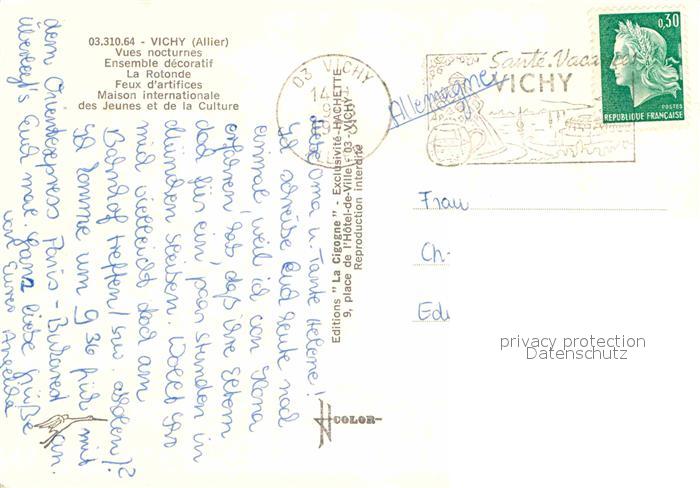 03.310.64 - VICHY (Allier)
Vues nocturnes
Ensemble décoratif
La Rotonde
Feux d'artifices
Maison internationale
des Jeunes et de la Culture
03 VICHY
14
Santé. Vacances
VICHY
0,30
POSTES
REPUBLIQUE FRANÇAISE
Allemagne
Editions "La Cigogne" - Exclusivité-HACHETTE
9, place de l'Hôtel-de-Ville - 03-VICHY-
Reproduction interdite
COLOR
Liebe Oma u. Tante Helene!
Ich schreibe Euch heute noch
einmal, weil ich von Ilona
erfahren hab, daß ihre Eltern
doch für ein paar Stunden in
München bleiben. Wollt Ihr
mich vielleicht doch am
Bahnhof treffen (bzw. abholen)?
Ich komme um 9 36 früh mit
dem Orientexpress Paris - Bukarest an.
Überlegt's Euch mal. Ganz liebe Grüße
von Eurer Angelika
Frau
Ch.
Edi
privacy protection
Datenschutz